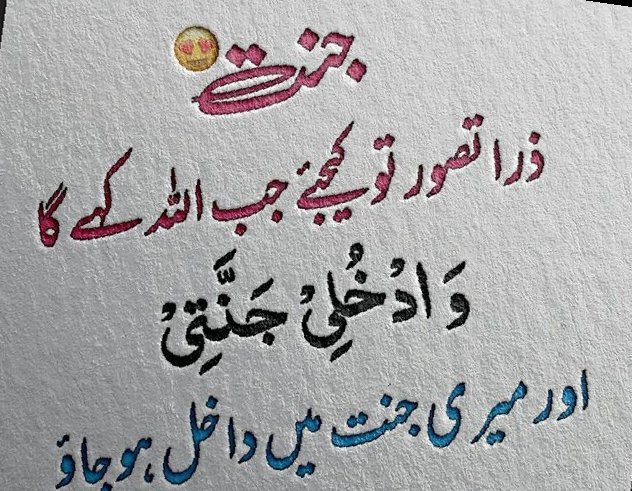 جنت 😍
ذرا تصور تو کیجئے جب اللہ کہے گا
وَادْخُلِیْ جَنَّتِیْ
اور میری جنت میں داخل ہو جاؤ